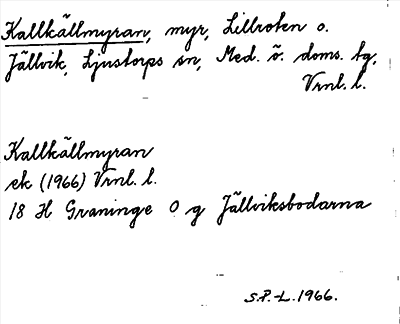 Kallkällmyran, myr, Lillroten o.
Jällvik, Ljustorps sn, Med. ö. doms. tg,
Vrnl. l.
Kallkällmyran
ek (1966) Vrnl. l.
18 H Graninge O g Jällviksbodarna
S.P.-L. 1966.